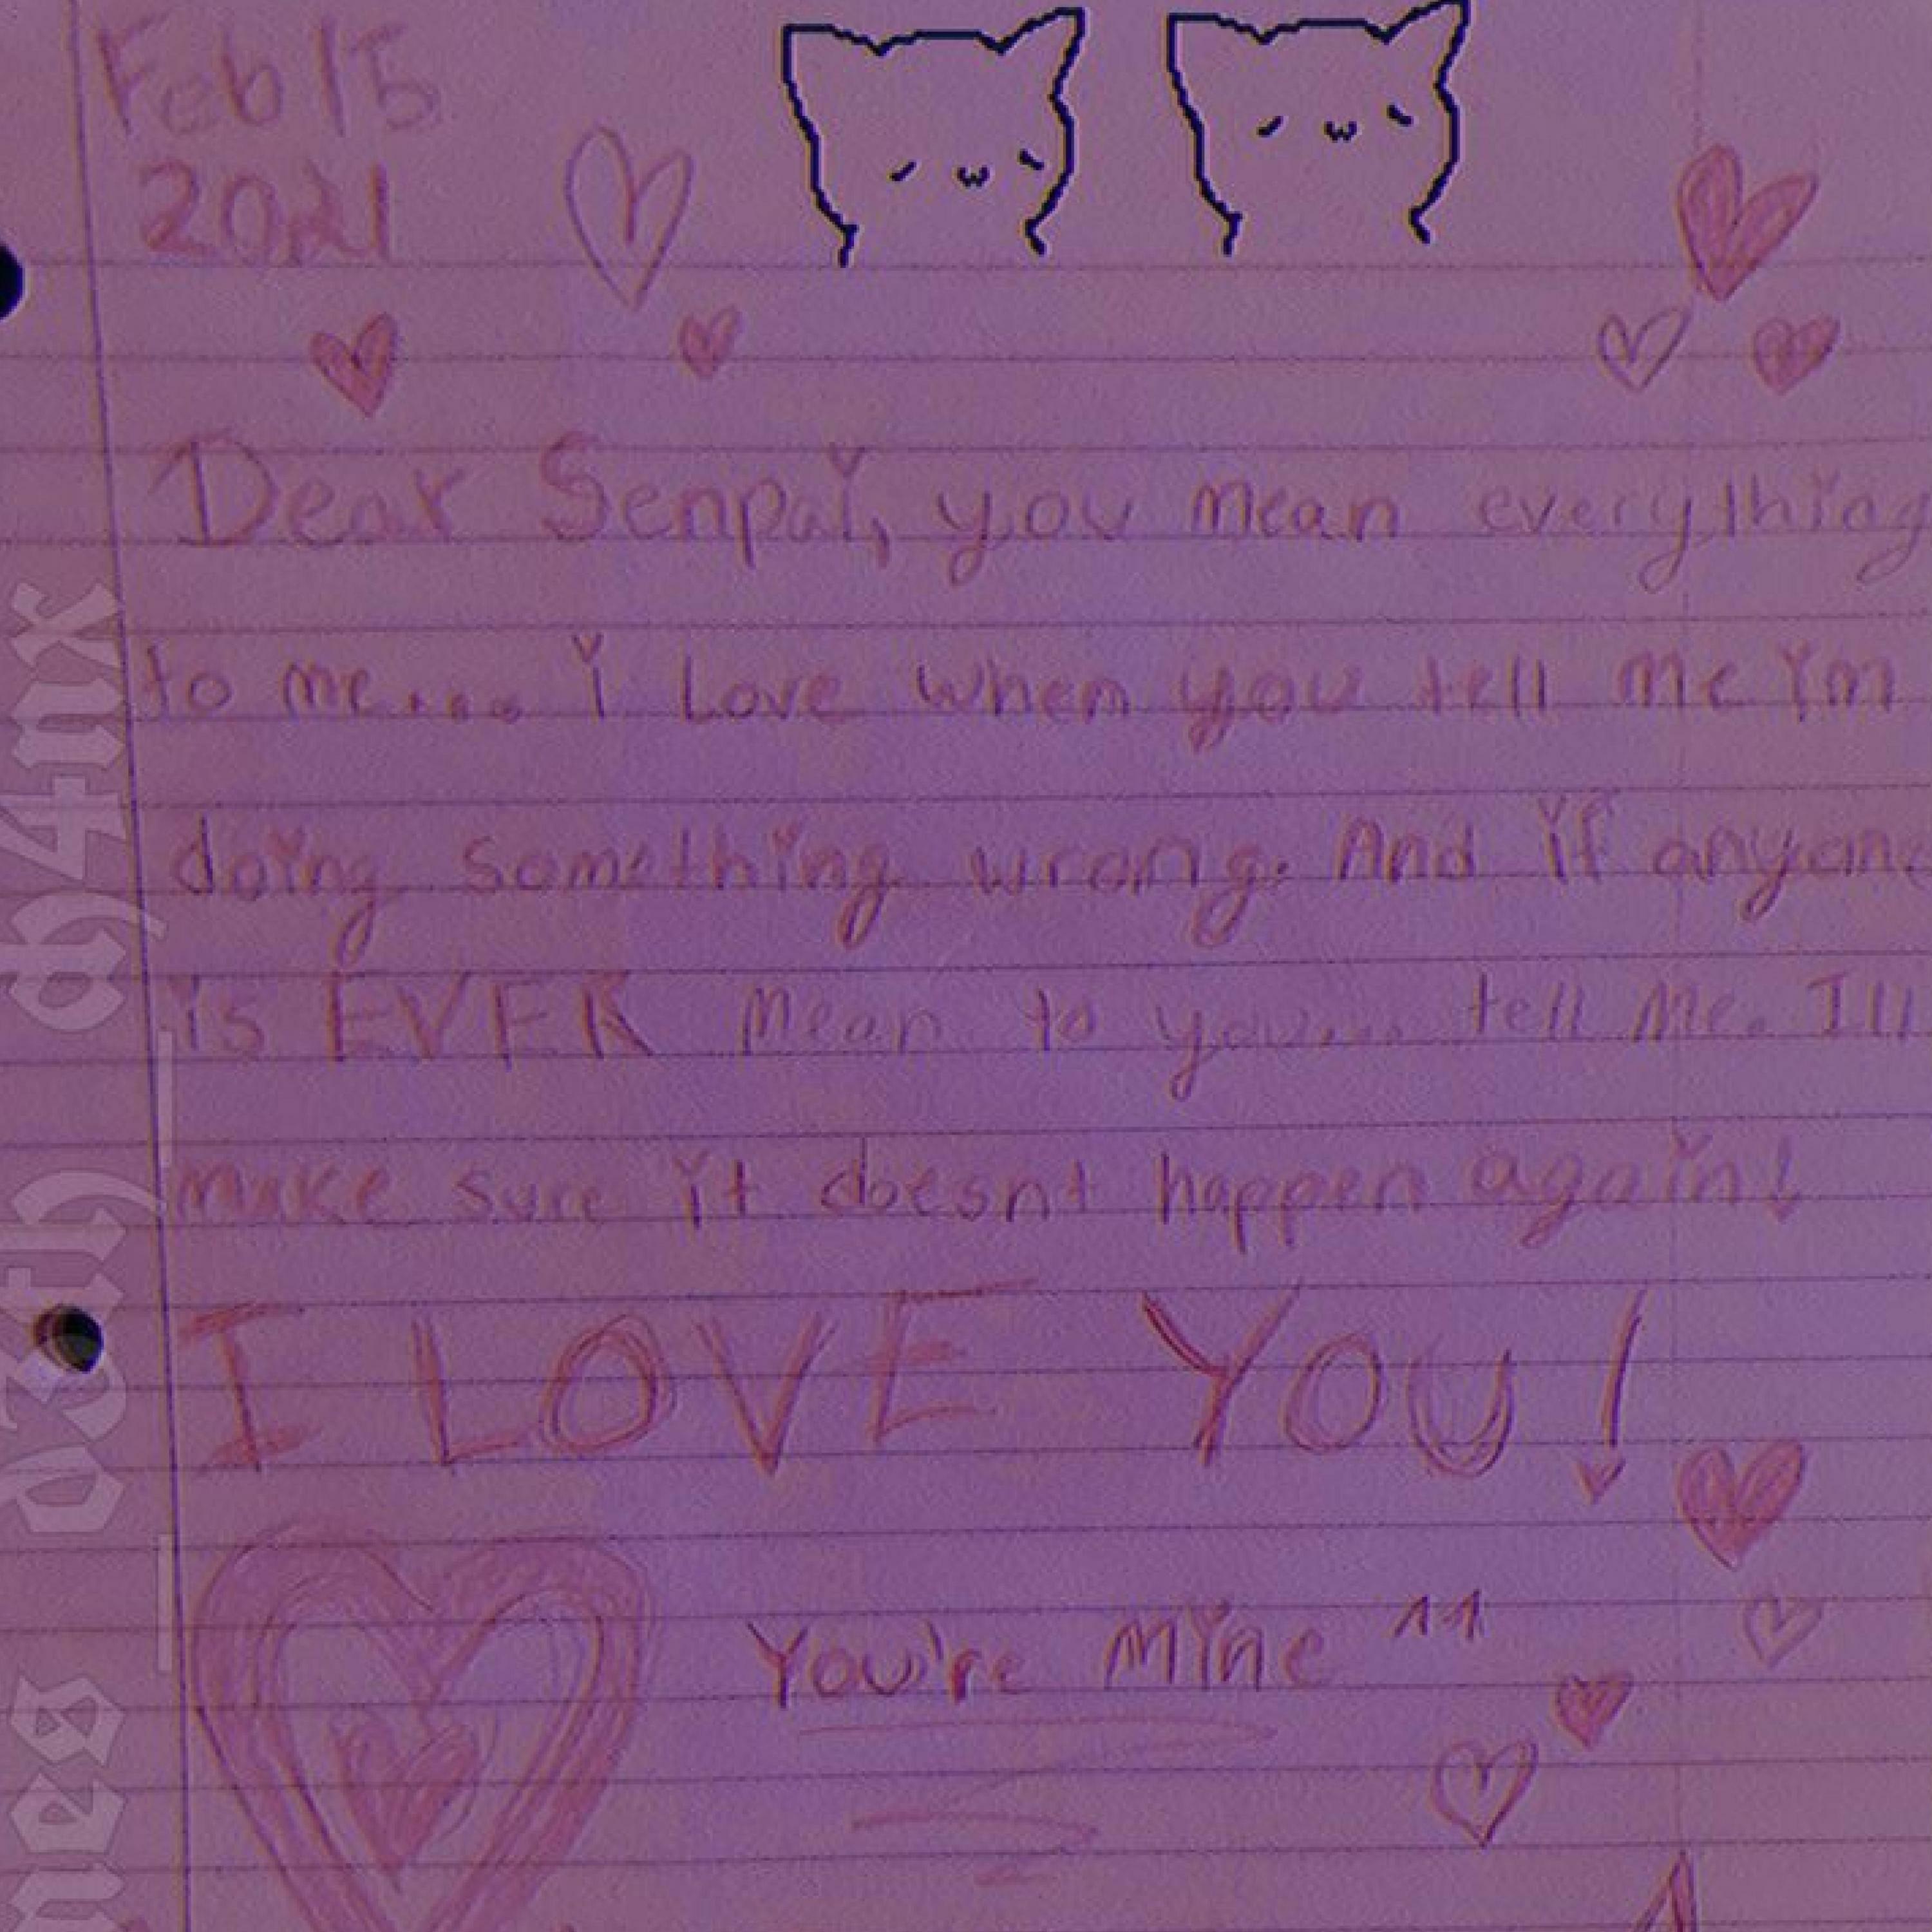 Feb 15
2021
Dear Senpai, you mean everything
to me.... i Love when you tell me im
doing something wrong. And if anyone
is EVER mean to you.... tell me. Ill
make sure it doesnt happen again!
I LOVE YOU!
You're Mine ^^